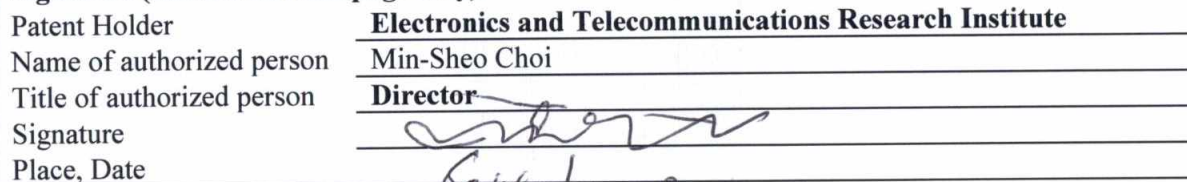 Patent Holder Electronics and Telecommunications Research Institute
Name of authorized person Min-Sheo Choi
Title of authorized person Director
Signature
Place, Date